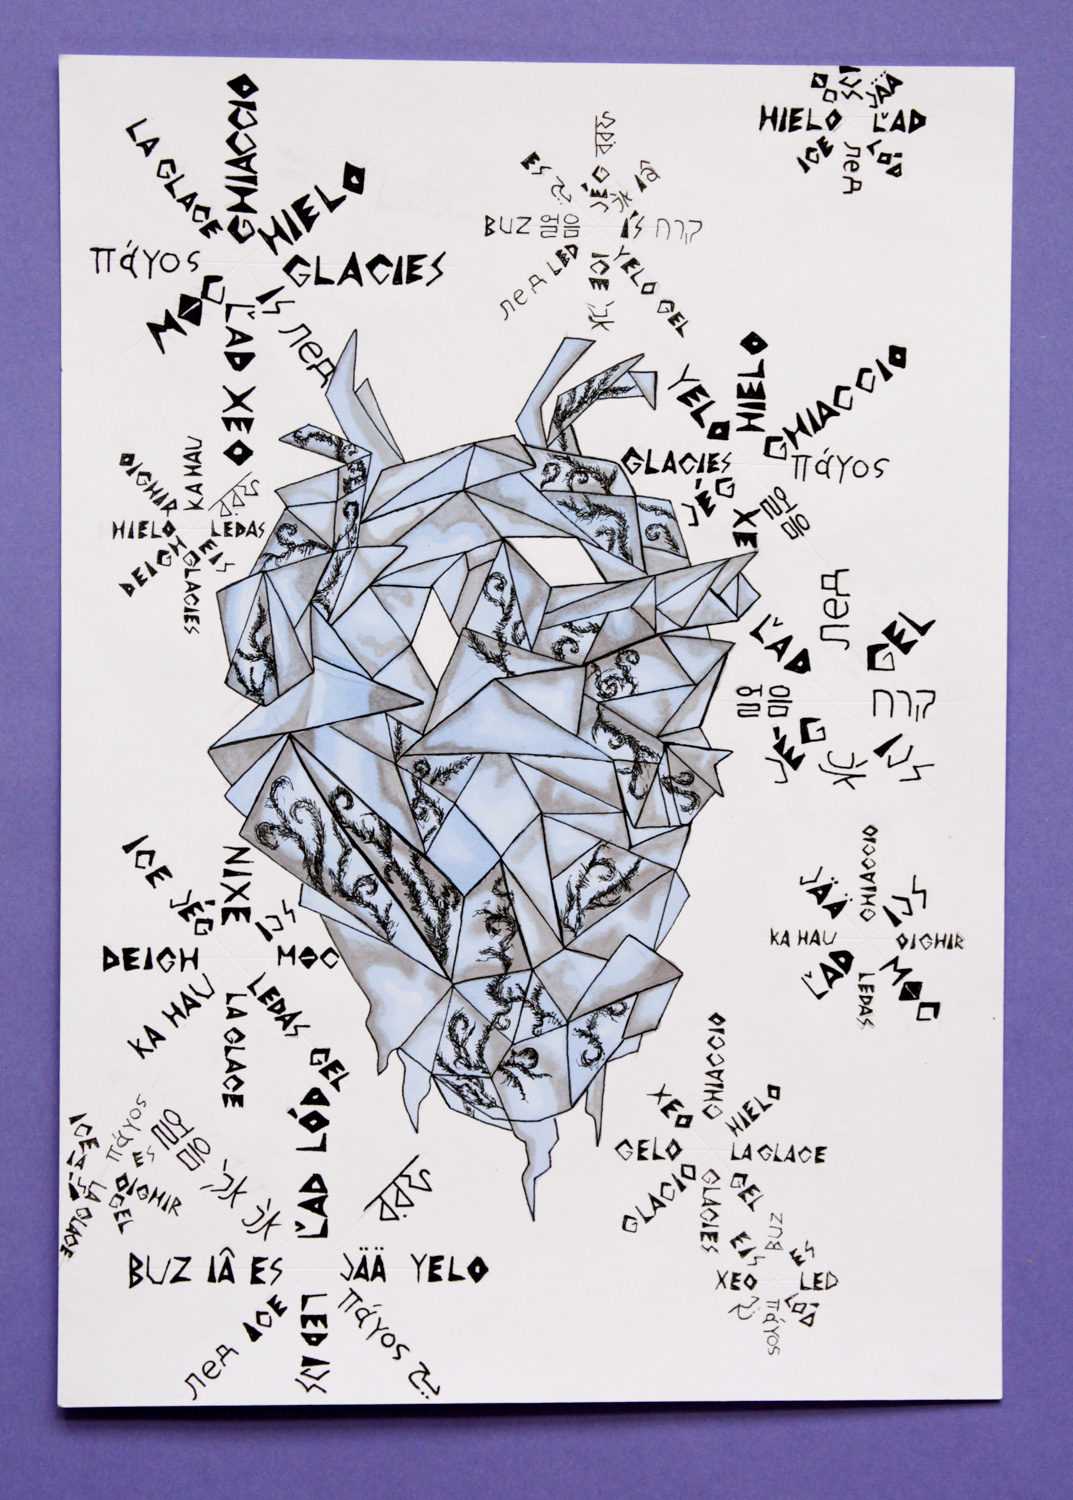 GHIACCIO
LA GLACE
HIELO
πάγος
GLACIES
MOC
ĽAD XEO
ÍS лед
ES
JÉG
BUZ 얼음
ÍS קרח
лед LED
ICE 冰
YELO GEL
HIELO ĽAD
ICE
лед
LÓÐ
YELO
HIELO
GHIACCIO
GLACIES
πάγος
JÉG
XE
얼음
OIGHIR
KA HAU
HIELO
LEDAS
DEIGH
GLACIES
EIS
лед
ĽAD
GEL
얼음
קרח
JÉG
冰
ÍS
ICE
JÉG
NIXE
ÍS
DEIGH
MOC
KA HAU
LA GLACE
LEDAS GEL
GHIACCIO
JÄÄ
ÍS
KA HAU
OIGHIR
ĽAD
LEDAS
MOC
ICE
πάγος
ES 얼음
OIGHIR
LA GLACE
GEL
冰
冰
ĽAD LÓD
BUZ IÂ ES
JÄÄ YELO
лед ICE
LED ÍS
πάγος
GHIACCIO
XEO
HIELO
GELO
LA GLACE
GLACIO
GLACIES
GEL
EIS
BUZ
ES
XEO
LED
πάγος